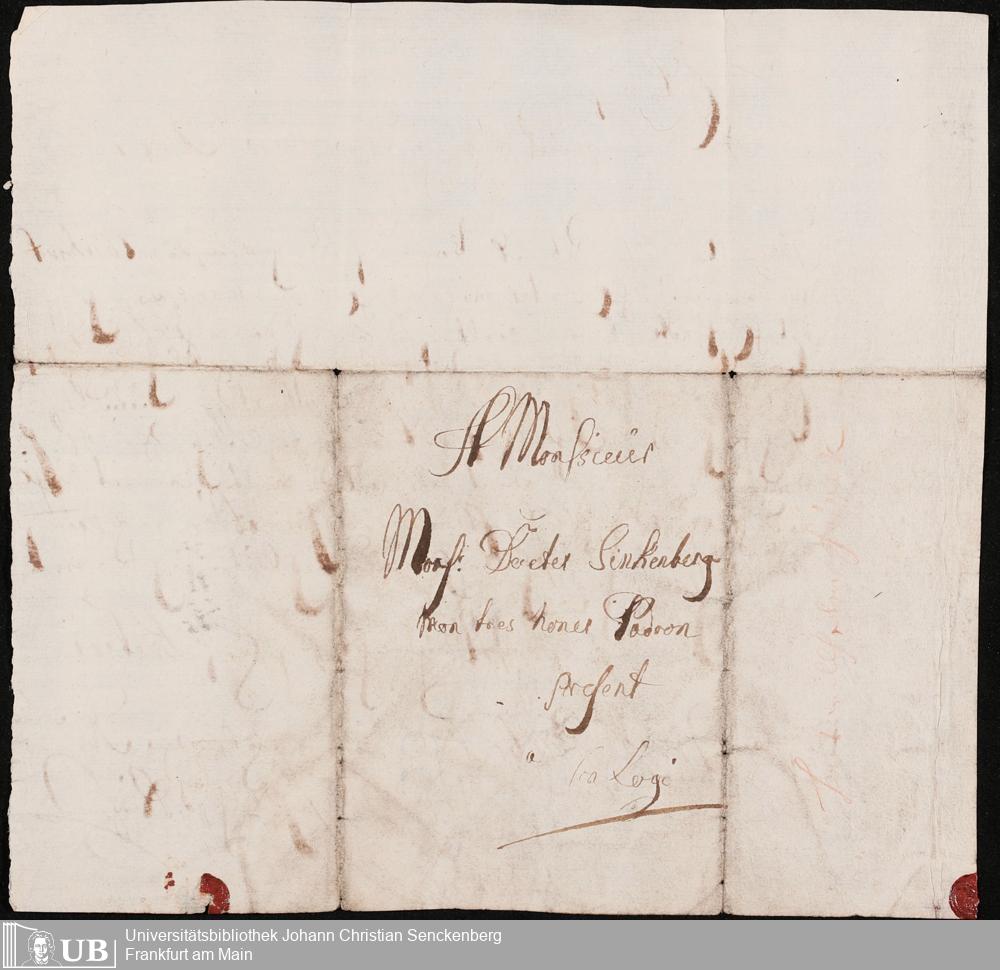 A Monsieür
Monsr. Docter Sinkenberg
mon tres honer Padron
present
Logi
UB Universitätsbibliothek Johann Christian Senckenberg
Frankfurt am Main